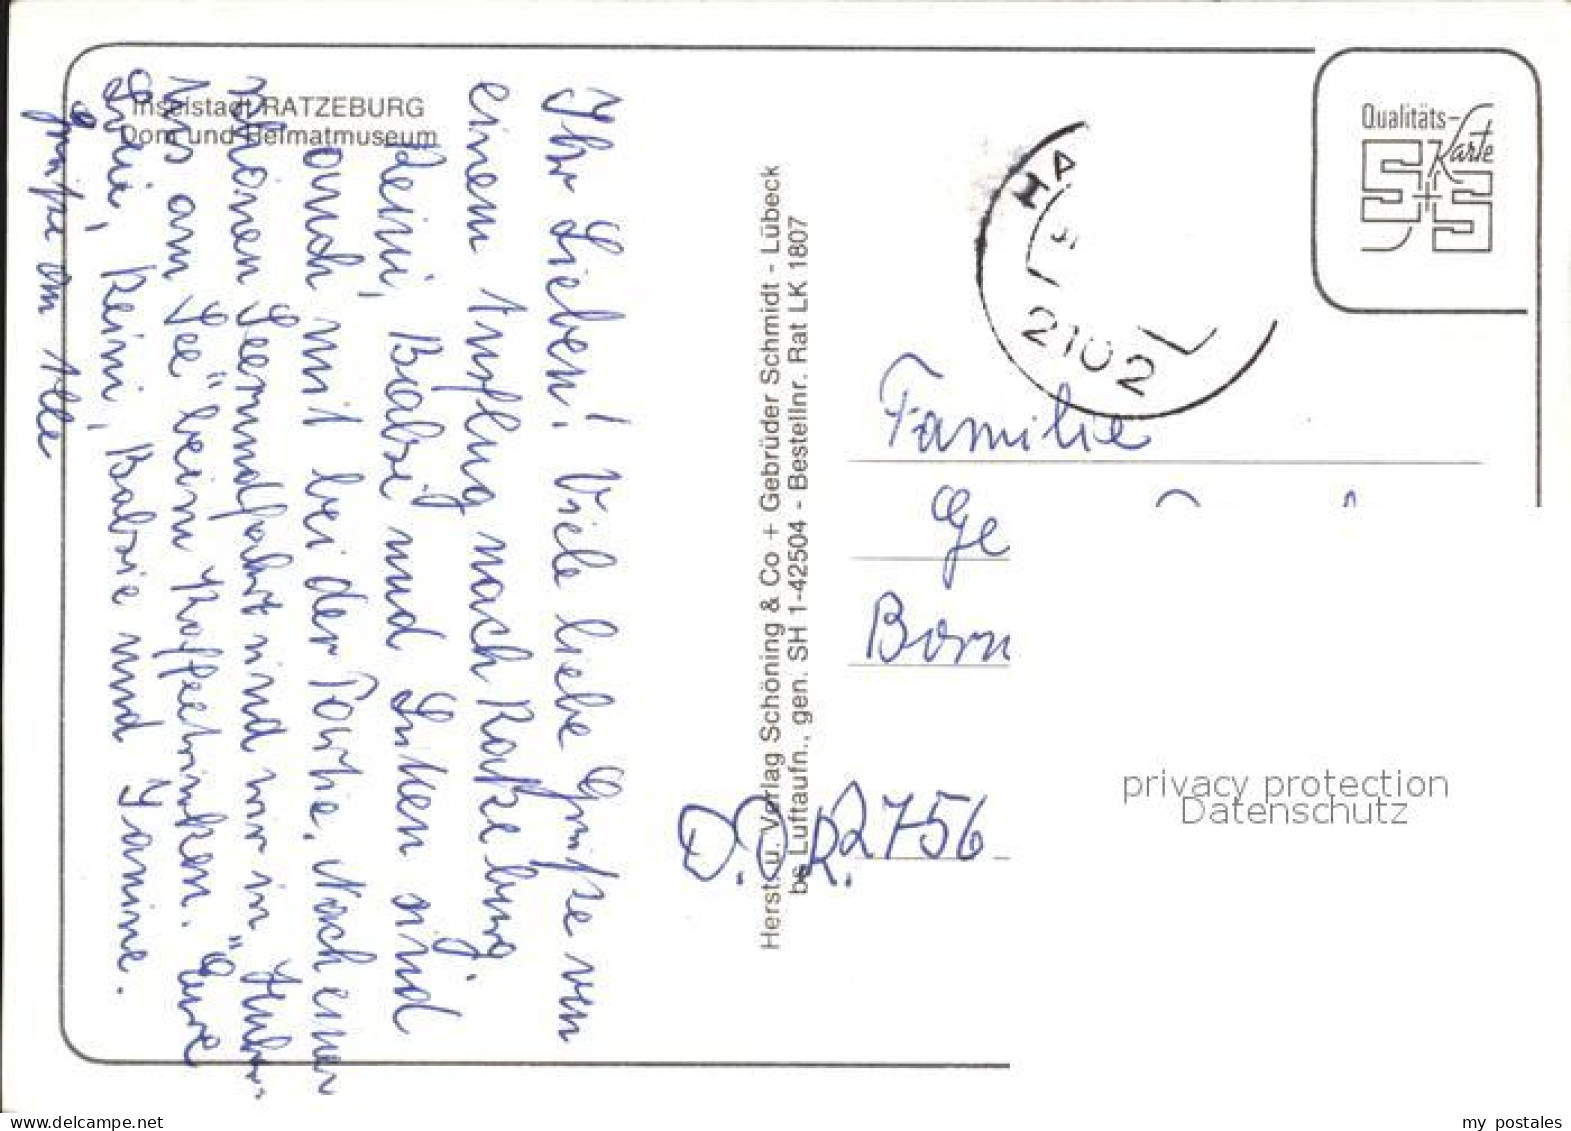 Inselstadt RATZEBURG
Dom und Heimatmuseum
Ihr Lieben! Viele liebe Grüße von
einem Ausflug nach Ratzeburg.
Reini, Babsi und sind
auch mit bei der Partie. Nach einer
schönen Seerundfahrt sind wir in "Hubertus
am See" beim Kaffeetrinken. Eure
Reini, Babsie und Janine.
Grüße an Alle
Herst. u. Verlag Schöning & Co + Gebrüder Schmidt - Lübeck
bs Luftaufn., gen. SH 1-42504 - Bestellnr. Rat LK 1807
Qualitäts-
Karte
S+S
HA
2102
Familie
Ge
Born
D.D.R. 2756
privacy protection
Datenschutz
delcampe.net
my_postales